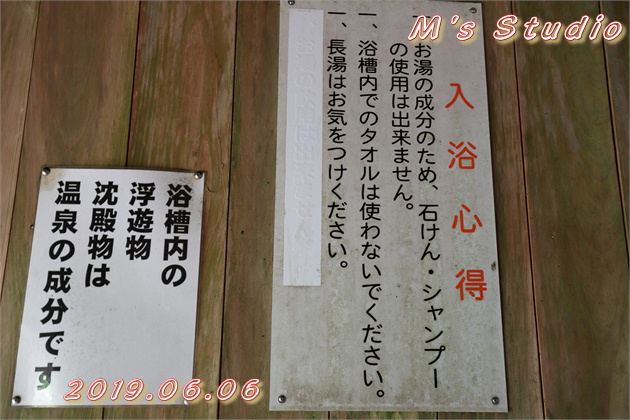 M's Studio
入浴心得
一、お湯の成分のため、石けん・シャンプー
の使用は出来ません。
一、浴槽内でのタオルは使わないでください。
一、長湯はお気をつけください。
浴槽内の
浮遊物
沈殿物は
温泉の成分です
2019.06.06